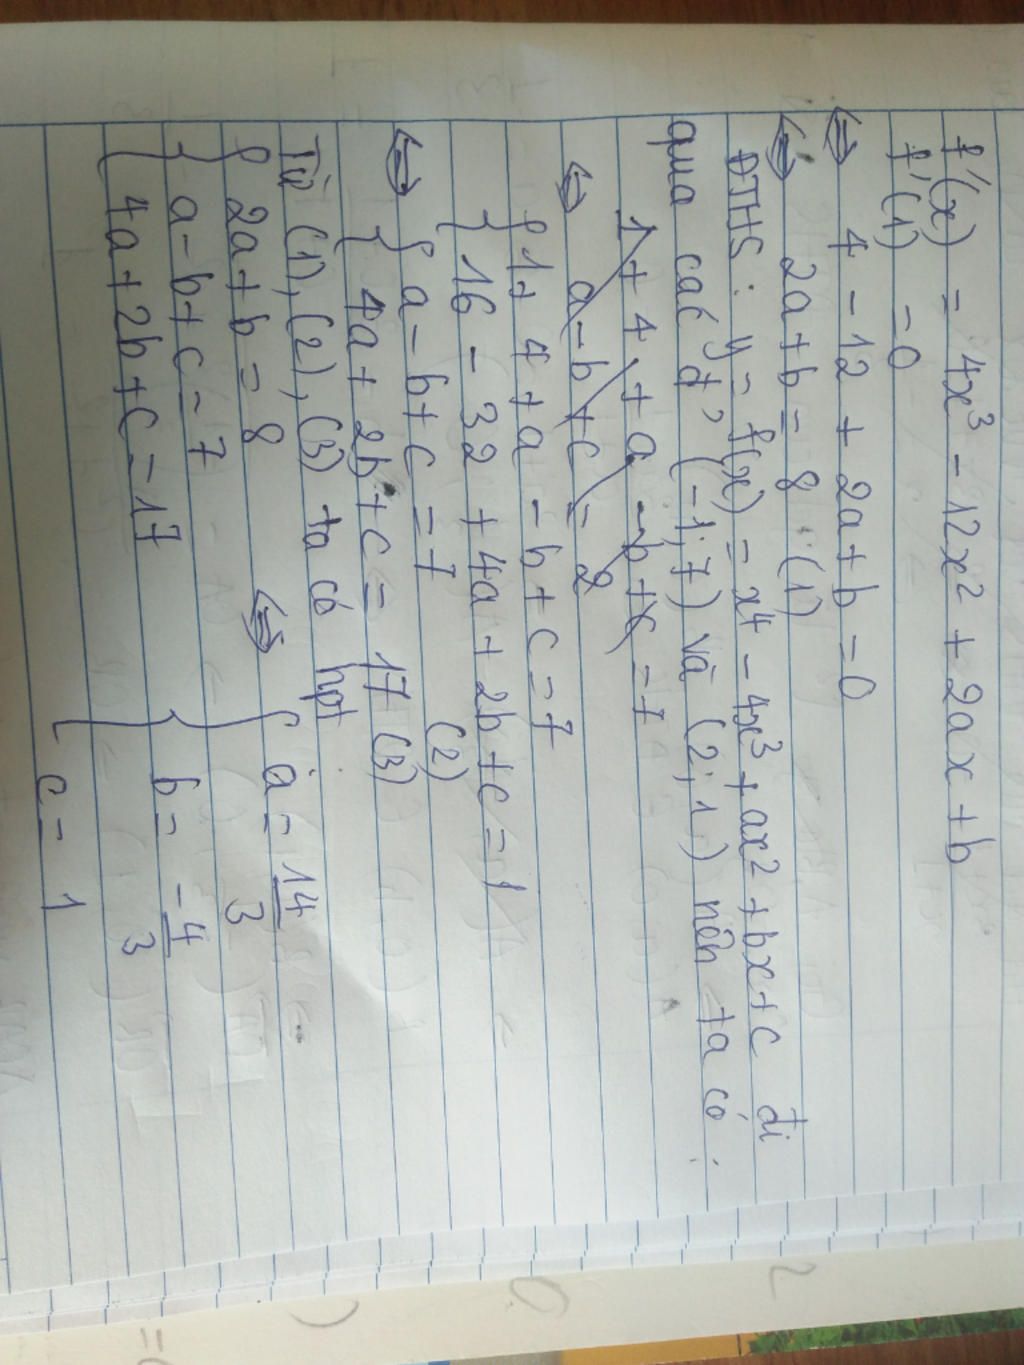 f'(x) = 4x³ - 12x² + 2ax + b
f'(1) = 0
⇔ 4 - 12 + 2a + b = 0
⇔ 2a + b = 8 (1)
ĐTHS: y = f(x) = x⁴ - 4x³ + ax² + bx + c đi
qua các đ' (-1; 7) và (2; 1) nên ta có:
1 + 4 + a - b + c = 7
⇔ a - b + c = 2
{ 1 + 4 + a - b + c = 7
16 - 32 + 4a + 2b + c = 1
⇔ { a - b + c = 7 (2)
4a + 2b + c = 17 (3)
Từ (1), (2), (3) ta có hpt
{ 2a + b = 8 ⇔ { a = 14/3
a - b + c = 7 b = -4/3
4a + 2b + c = 17 c = 1